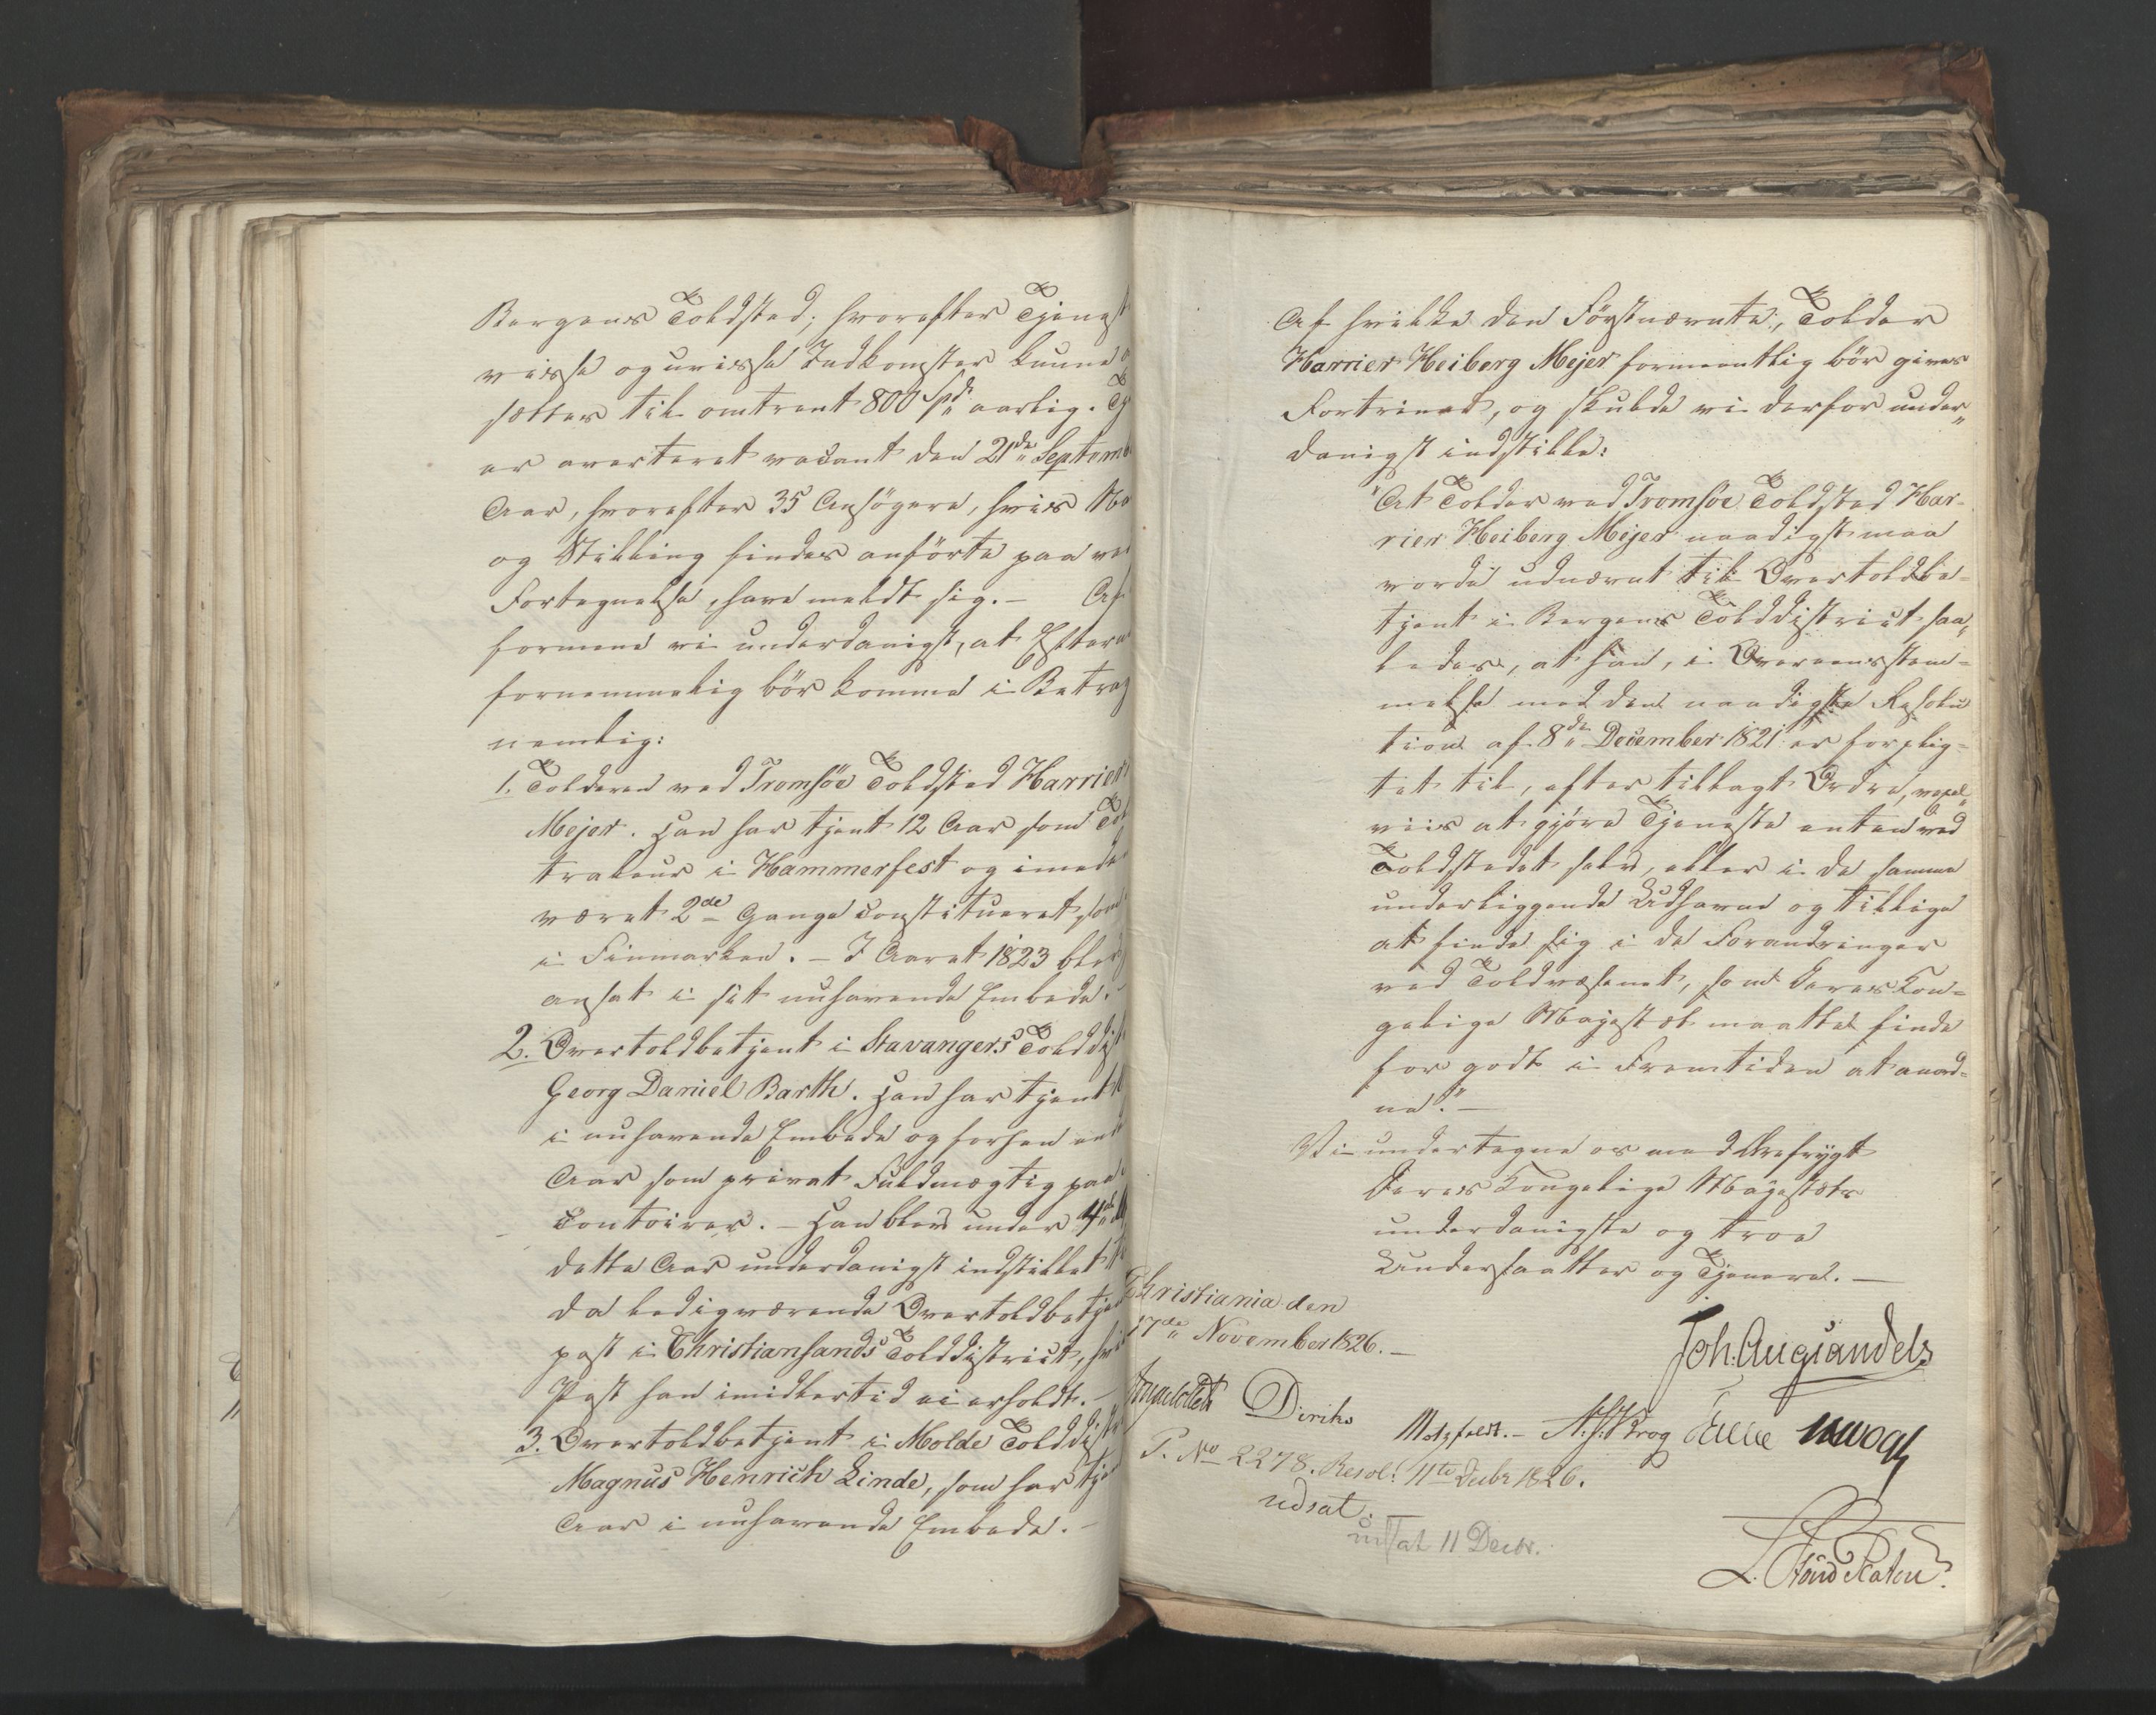 Bergens Toldsted; hvorefter Tjenest
visse og uvisse Indkomster kunne
sættes til omtrent 800 Spd aarlig. Tj
er averteret vacant den 21de Septemb
Aar, hvorefter 35 Ansøgere, hvis Na
og Stilling findes anførte paa ved
Fortegnelse, have meldt sig. – Af
formene vi underdanigst, at Eftern
fornemmelig bør komme i Betrag
nemlig:
1. Tolderen ved Tromsöe Toldsted Harrier
Mejer. Han har tjent 12 Aar som
trolleur i Hammerfest og imed
været 2de Gange constitueret som
i Finmarken. – I Aaret 1823 blev
ansat i sit nuhavende Embede. –
2. Overtoldbetjent i Stavangers Tolddist
Georg Daniel Barth. Han har tjent
i nuhavende Embede og forhen
Aar som privat Fuldmægtig paa
Contoirer. – Han blev under 4de
dette Aar underdanigst indstillet
da ledigværende Overtoldbetje
post i Christiansands Tolddistrict, hvi
Post han imidlertid ei erholdt. –
3. Overtoldbetjent i Molde Tolddistr
Magnus Henrich Linde, som har tje
Aar i nuhavende Embede. –
Af hvilke den Förstnævnte, Tolder
Harrier Heiberg Mejer formeentlig bör gives
Fortrinet, og skulde vi derfor under„
danigst indstille:
"At Tolder ved Tromsöe Toldsted Har-
rier Heiberg Mejer naadigst maa
vorde udnævnt til Overtoldbe=
tjent i Bergens Tolddistrict saa„
ledes, at han, i Overeensstem=
melse med den naadigste Resolu
tion af 8de December 1821 er forplig=
tet til, efter tillagt Ordre, vexel„
viis at gjöre Tjeneste enten ved
Toldstedet selv, eller i de samme
underliggende Udhavne og tillige
at finde sig i de Forandringer
ved Toldvæsenet, som Deres Kon=
gelige Majestæt maatte finde
for godt i Fremtiden at anord=
ne." –
Vi undertegne os med Ærefrygt
Deres Kongelige Majestæts
underdanigste og troe
Undersaatter og Tjenere. –
Christiania den
17de November 1826. –
Joh. Aug: Sandels
Ingelotte Diriks Motzfeldt. – A. J. Krog
P. No 2278. Resol: 11te Decbr 1826.
udsat.
udsat 11 Decbr.
L. Stoud Platou.